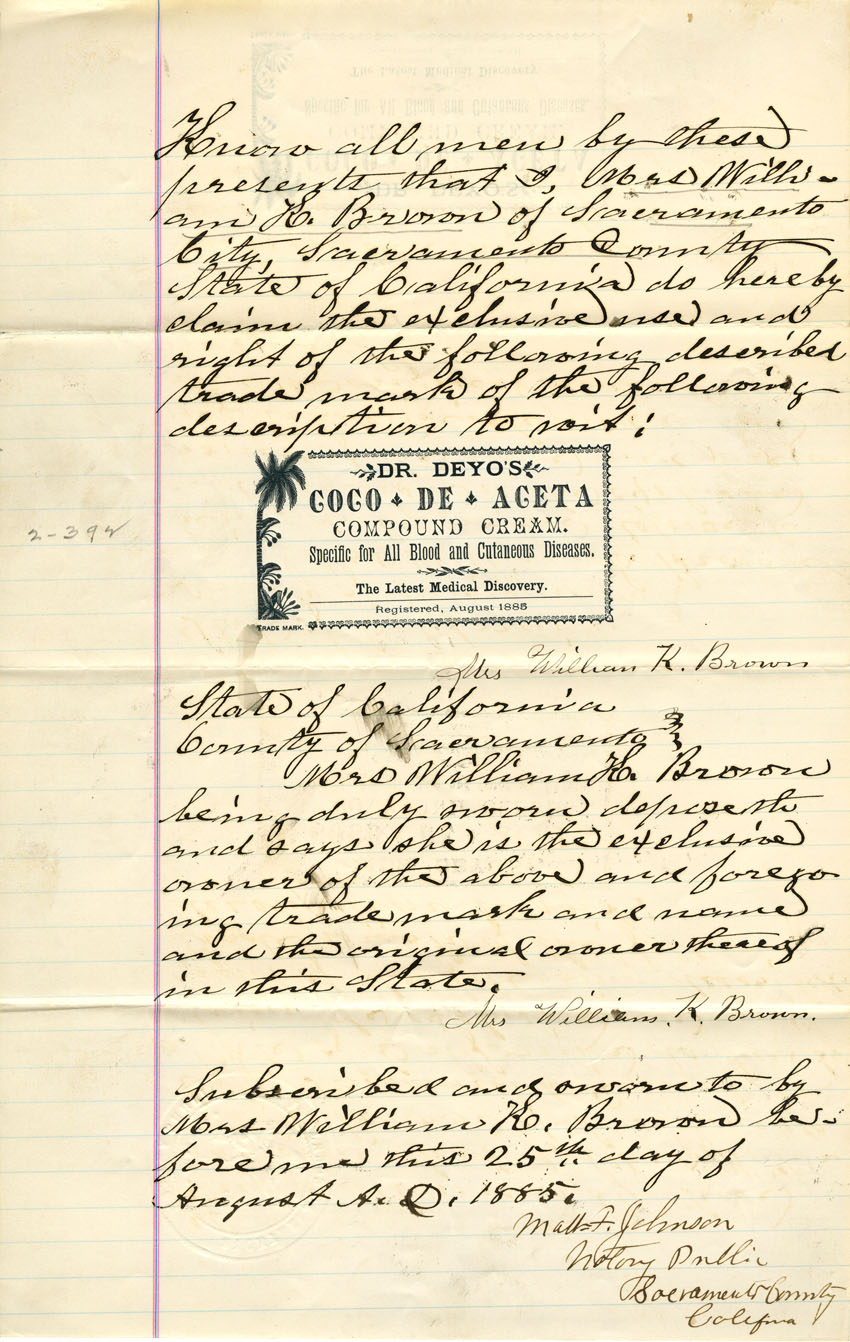 Know all men by these
presents that I, Mrs Willi-
am K. Brown of Sacramento
City, Sacramento County
State of California do hereby
claim the exclusive use and
right of the following described
trade mark of the following
description to wit:
DR. DEYO'S
COCO DE ACETA
COMPOUND CREAM.
Specific for All Blood and Cutaneous Diseases.
The Latest Medical Discovery.
Registered, August 1885
TRADE MARK.
2-392
Mrs William K. Brown
State of California
County of Sacramento
Mrs William K. Brown
being duly sworn deposeth
and says she is the exclusive
owner of the above and forego
ing trade mark and name
and the original owner thereof
in this State.
Mrs William. K. Brown.
Subscribed and sworn to by
Mrs William K. Brown be-
fore me this 25th day of
August A. D. 1885.
Matt F. Johnson
Notory Public
Sacramento County
California